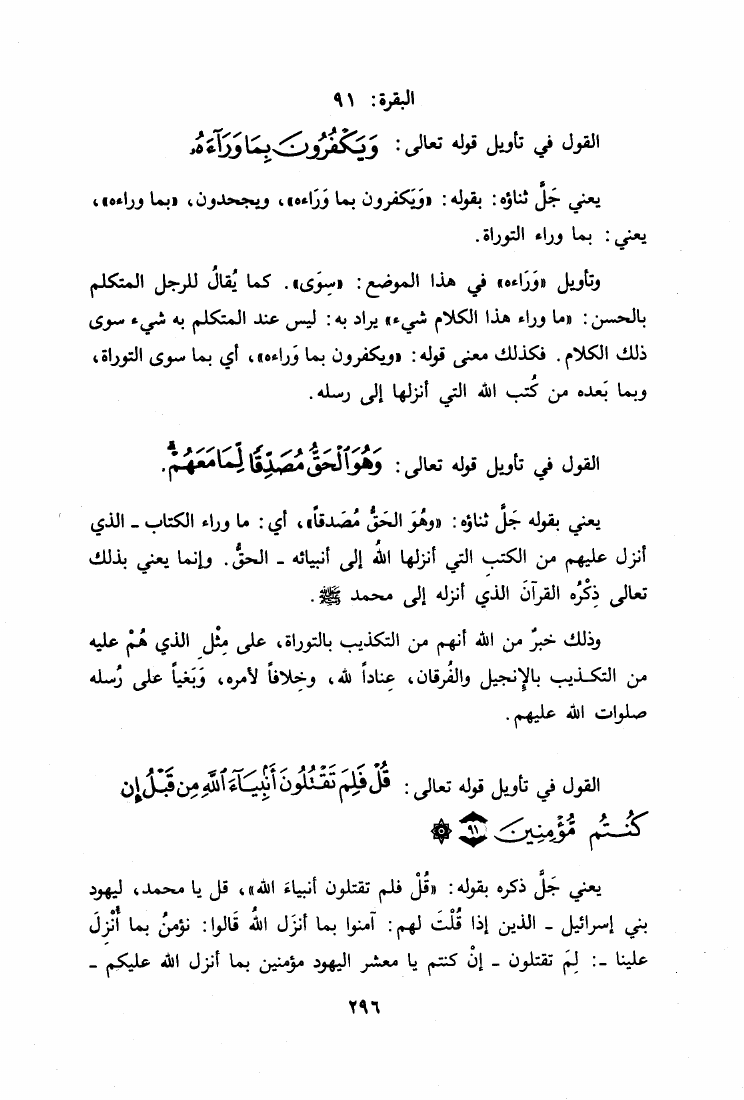 البقرة: ٩١
القول في تأويل قوله تعالى: وَيَكْفُرُونَ بِمَا وَرَآءَهُۥ
يعني جَلَّ ثناؤه: بقوله: «وَيَكفرون بما وَرَاءه»، ويجحدون، «بما وراءه»،
يعني: بما وراء التوراة.
وتأويل «وَرَاءه» في هذا الموضع: «سِوَى». كما يُقالُ للرجل المتكلم
بالحسن: «ما وراء هذا الكلام شيء» يراد به: ليس عند المتكلم به شيء سوى
ذلك الكلام. فكذلك معنى قوله: «ويكفرون بما وَراءه»، أي بما سوى التوراة،
وبما بَعده من كُتب الله التي أنزلها إلى رسله.
القول في تأويل قوله تعالى: وَهُوَ ٱلْحَقُّ مُصَدِّقًا لِّمَا مَعَهُمْ ۗ.
يعني بقوله جَلَّ ثناؤه: «وهُوَ الحَقُّ مُصَدقاً»، أي: ما وراء الكتاب ـ الذي
أنزل عليهم من الكتبِ التي أنزلها اللهُ إلى أنبيائه ـ الحقُّ. وإنما يعني بذلك
تعالى ذِكْرُه القرآنَ الذي أنزله إلى محمد ﷺ.
وذلك خبرٌ من الله أنهم من التكذيب بالتوراة، على مِثْلِ الذي هُمْ عليه
من التكذيب بالإنجيل والفُرقان، عِناداً لله، وخِلافاً لأمره، وَبَغياً على رُسله
صلوات الله عليهم.
القول في تأويل قوله تعالى: قُلْ فَلِمَ تَقْتُلُونَ أَنۢبِيَآءَ ٱللَّهِ مِن قَبْلُ إِن
كُنتُم مُّؤْمِنِينَ ٩١ ۞
يعني جَلَّ ذكره بقوله: «قُلْ فلم تقتلون أنبياءَ الله»، قل يا محمد، ليهود
بني إسرائيل ـ الذين إذا قُلْتَ لهم: آمنوا بما أنزَل اللهُ قَالوا: نؤمنُ بما أُنْزِلَ
علينا ـ: لِمَ تقتلون ـ إنْ كنتم يا معشر اليهود مؤمنين بما أنزل الله عليكم ـ
٢٩٦